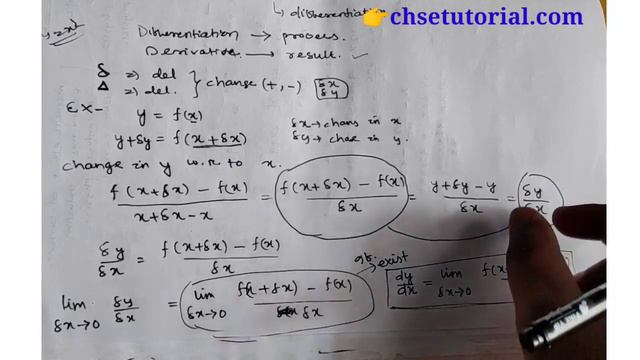 ↳ differentiation
👉 chsetutorial.com
y=x²
Differentiation → process.
Derivative → result. ✓
δ ⇒ del
Δ ⇒ del. } change (+, -) δx δy
Ex- y = f(x)
y+δy = f(x+δx)
δx → chans in x
δy → chae in y.
change in y w.r. to x.
f(x+δx) - f(x) / x+δx-x = f(x+δx) - f(x) / δx = y+δy-y / δx = δy / δx
δy/δx = f(x+δx) - f(x) / δx
exist
lim δx→0 δy/δx = lim δx→0 f(x+δx) - f(x) / δx
dy/dx = lim δx→0 f(x